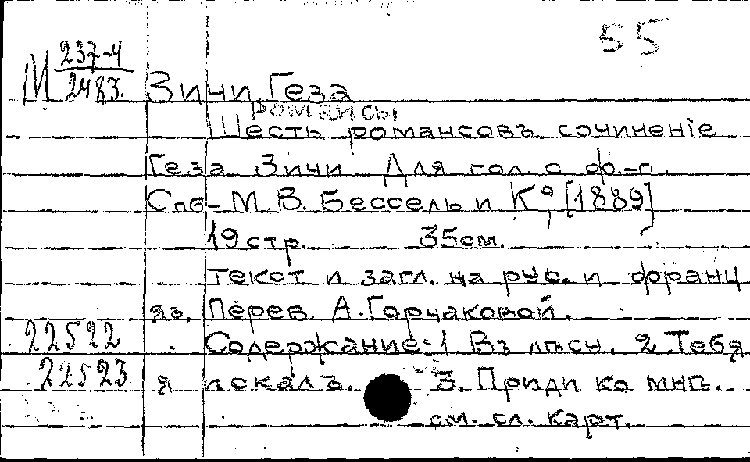 55
М 237-4
2483.
Зичи, Геза
романсы
Шесть романсовъ сочиненiе
Геза Зичи Для гол. с ф.-п.
Спб-М. В. Бессель и Кº, [1889]
19 стр. 35см.
текст и загл. на рус. и франц
яз. Перев. А. Горчаковой.
22522
Содержание: 1 Въ лѣсу. 2. Тебя
22523
я искалъ. 3. Приди ко мнѣ.
см. сл. карт.